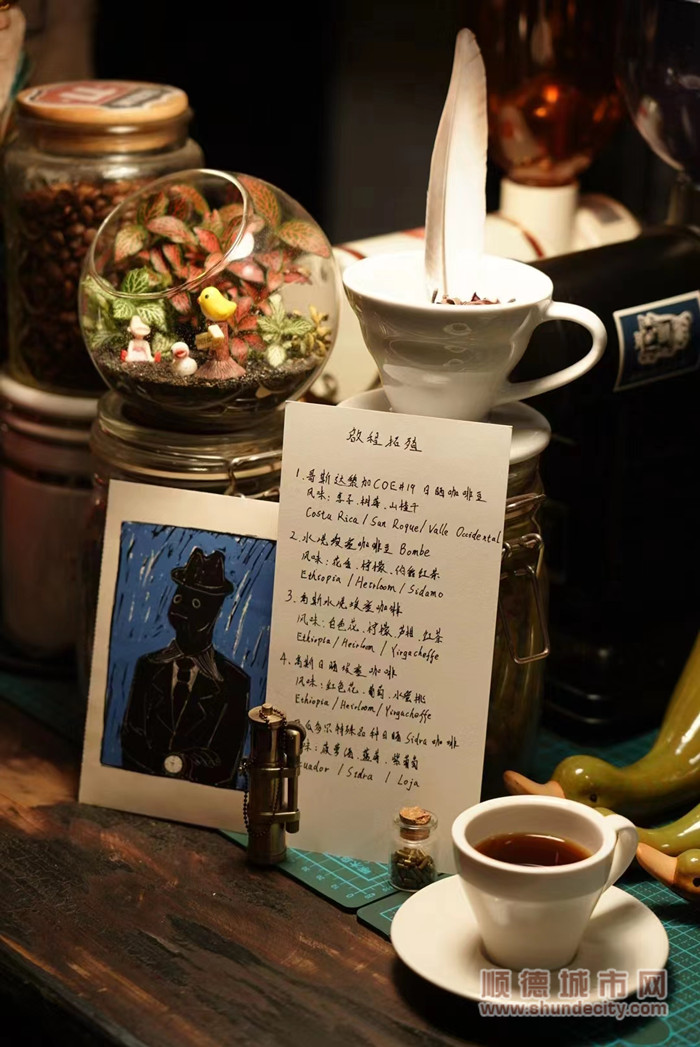 启程拓殖
1. 哥斯达黎加COE#19 日晒咖啡豆
风味：李子、树莓、山楂干
Costa Rica / San Roque / Valle Occidental
2. 水洗埃塞咖啡豆 Bombe
风味：花香、柠檬、伯爵红茶
Ethiopia / Heirloom / Sidamo
3. 高斯水洗埃塞咖啡
风味：白色花、柠檬、芦柑、红茶
Ethiopia / Heirloom / Yirgacheffe
4. 高斯日晒埃塞咖啡
风味：红色花、葡萄、水蜜桃
Ethiopia / Heirloom / Yirgacheffe
瓜多尔特殊品种日晒 Sidra 咖啡
味：菠萝汤、蓝莓、紫葡萄
uador / Sidra / Loja
顺德城市网
www.shundecity.com